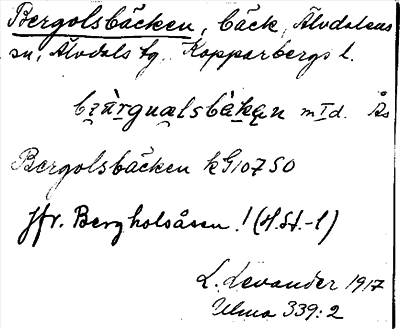 Bergolsbäcken, bäck, Älvdalens
sn, Älvdals tg, Kopparbergs l.
mid. Ås
Bergolsbäcken kG 10750
Jfr. Bergholsåsen! (H.St.-l)
L. Levander 1917
Ulma 339:2